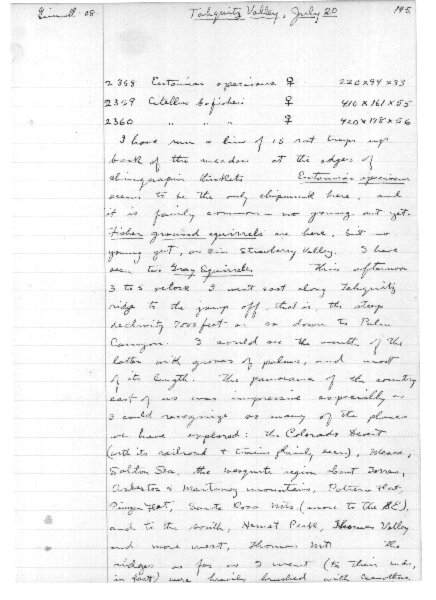 Grinnell - 08 Tahquitz Valley, July 20 145
2358 Eutamias speciosus ♀ 220×94×33
2359 Citellus b. fisheri ♀ 410×161×55
2360 " " " ♀ 420×178×56
I have run a line of 15 rat traps up
back of the meadow at the edges of
chinquapin thickets Eutamias speciosus
seems to be the only chipmunk here, and
it is fairly common – no young out yet.
Fisher ground squirrels are here, but no
young yet, as in Strawberry Valley. I have
seen two Gray Squirrels. This afternoon
3 to 5 oclock I went east along Tahquitz
ridge to the jump off, that is, the steep
declivity 7000 feet or so down to Palm
Canyon. I could see the mouth of the
latter with groves of palms, and most
of its length. The panorama of the country
east of us was impressive especially as
I could recognize so many of the places
we have explored: the Colorado Desert
(with its railroad + trains plainly seen), Mecca,
Salton Sea, the mesquite region
Asbestos + Martinez mountains, Potrero Flat,
Pinyon Flat, Santa Rosa Mts. (more to the SE),
and to the south, Hemet Peak, Thomas Valley
and more west, Thomas Mt. The
ridges as far as I went (to their ends,
in fact) were heavily brushed with Ceanothus